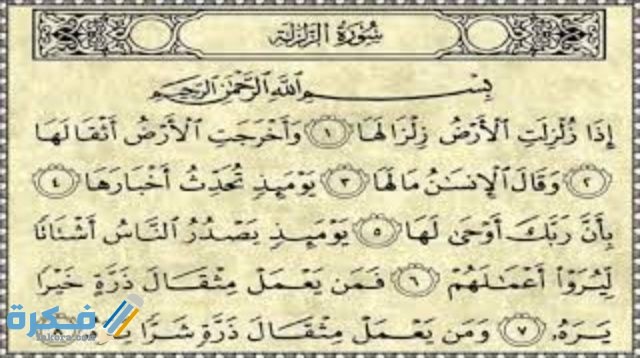 سُورَةُ الزَّلْزَلَةِ
بِسْمِ اللَّهِ الرَّحْمَٰنِ الرَّحِيمِ
إِذَا زُلْزِلَتِ الْأَرْضُ زِلْزَالَهَا ١ وَأَخْرَجَتِ الْأَرْضُ أَثْقَالَهَا
٢ وَقَالَ الْإِنسَانُ مَا لَهَا ٣ يَوْمَئِذٍ تُحَدِّثُ أَخْبَارَهَا ٤
بِأَنَّ رَبَّكَ أَوْحَىٰ لَهَا ٥ يَوْمَئِذٍ يَصْدُرُ النَّاسُ أَشْتَاتًا
لِّيُرَوْا أَعْمَالَهُمْ ٦ فَمَن يَعْمَلْ مِثْقَالَ ذَرَّةٍ خَيْرًا
يَرَهُ ٧ وَمَن يَعْمَلْ مِثْقَالَ ذَرَّةٍ شَرًّا
فكرة